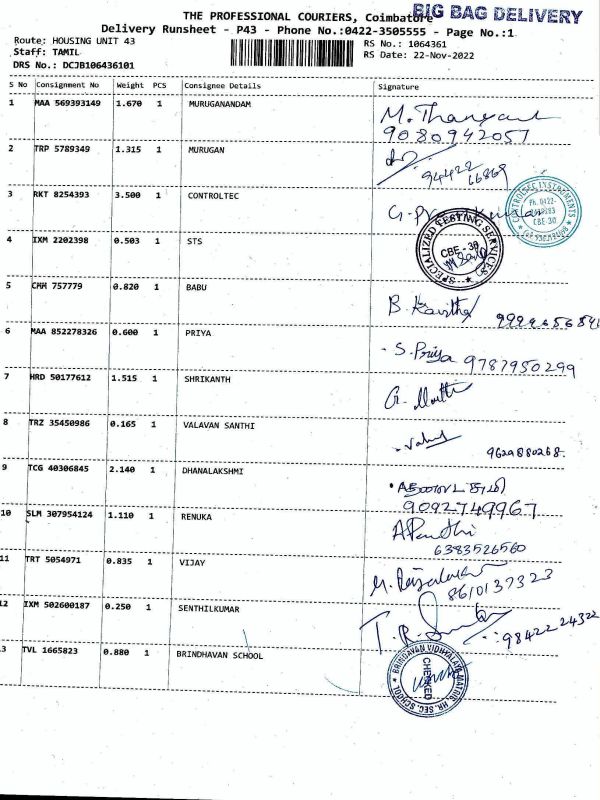 THE PROFESSIONAL COURIERS, Coimbatore
BIG BAG DELIVERY
Delivery Runsheet - P43 - Phone No.:0422-3505555 - Page No.:1
Route: HOUSING UNIT 43
RS No.: 1064361
Staff: TAMIL
RS Date: 22-Nov-2022
DRS No.: DCJB106436101
S No Consignment No Weight PCS Consignee Details Signature
1 MAA 569393149 1.670 1 MURUGANANDAM
9080942057
2 TRP 5789349 1.315 1 MURUGAN
94422 66869
3 RKT 8254393 3.500 1 CONTROLTEC
4 IXM 2202398 0.503 1 STS
SPECIALIZED TESTING SERVICES
CBE - 30
5 CMM 757779 0.820 1 BABU
B. Kavitha
6 MAA 852278326 0.600 1 PRIYA
S. Priya 9787950299
7 HRD 50177612 1.515 1 SHRIKANTH
8 TRZ 35450986 0.165 1 VALAVAN SANTHI
9629880268.
9 TCG 40306845 2.140 1 DHANALAKSHMI
9092749967
10 SLM 307954124 1.110 1 RENUKA
6383526560
11 TRT 5054971 0.835 1 VIJAY
8610137323
12 IXM 502600187 0.250 1 SENTHILKUMAR
98422 24322
13 TVL 1665823 0.880 1 BRINDHAVAN SCHOOL
BRINDAVAN VIDHYALAYA MATRIC HR. SEC. SCHOOL
CHECKED